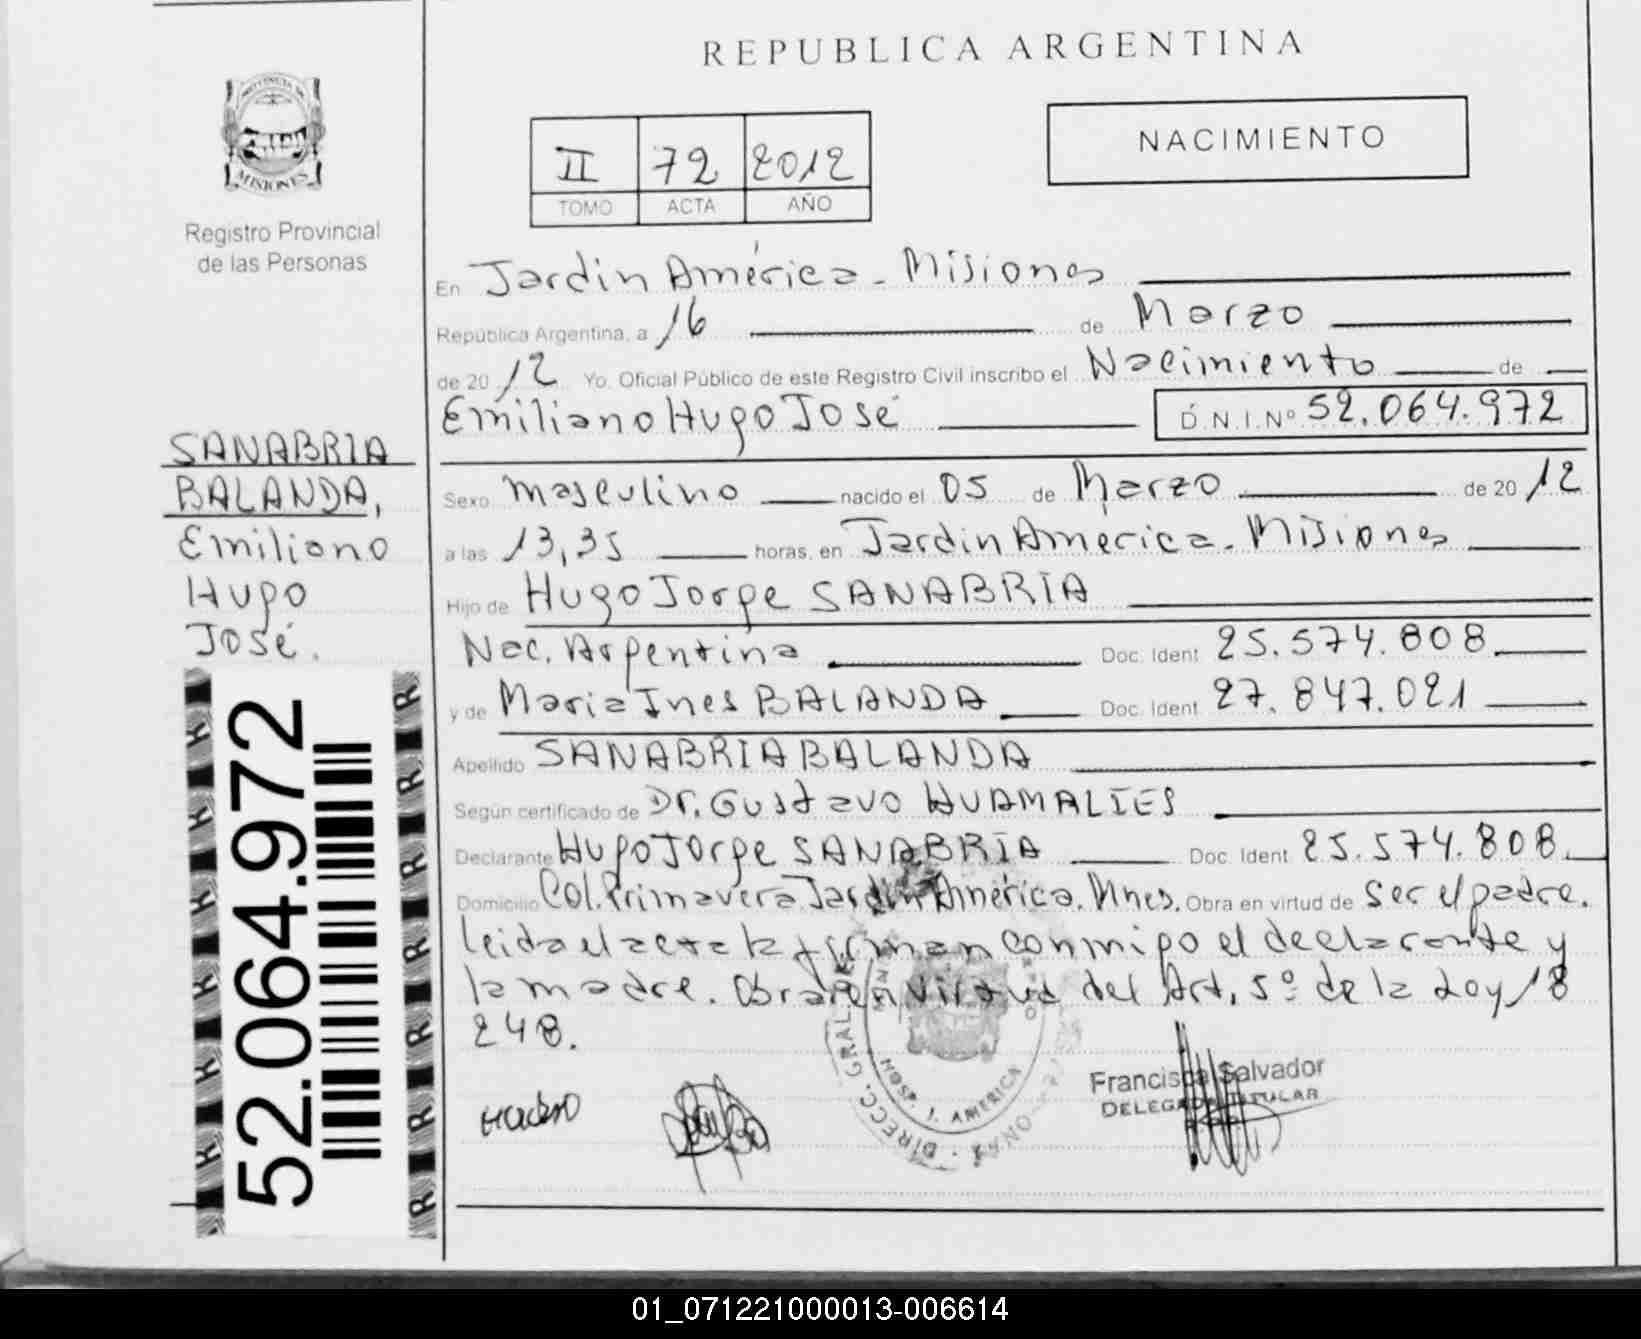 REPUBLICA ARGENTINA
PROVINCIA DE
MISIONES
Registro Provincial
de las Personas
II 72 2012
TOMO ACTA AÑO
NACIMIENTO
En Jardin América - Misiones
República Argentina, a 16 de Marzo
de 2012 Yo, Oficial Público de este Registro Civil inscribo el Nacimiento de
Emiliano Hugo José D.N.I.Nº 52.064.972
SANABRIA
BALANDA,
Emiliano
Hugo
José.
Sexo masculino nacido el 05 de Marzo de 2012
a las 13,35 horas, en Jardin America - Misiones
Hijo de Hugo Jorge SANABRIA
Nac. Argentina Doc. Ident 25.574.808
y de Maria Ines BALANDA Doc. Ident 27.847.021
Apellido SANABRIA BALANDA
Según certificado de Dr. Gustavo HUAMALIES
Declarante Hugo Jorge SANABRIA Doc. Ident. 25.574.808.
Domicilio Col. Primavera Jardin América. Mnes. Obra en virtud de Ser el padre.
leida el acta la firman conmigo el declarante y
la madre. Obra en Virtud del Art. 5º de la Ley 18
248.
52.064.972
DIRECC. GRAL.
HOSP. J. AMERICA
Francisca Salvador
DELEGADA TITULAR
R R R R R R
01_071221000013-006614